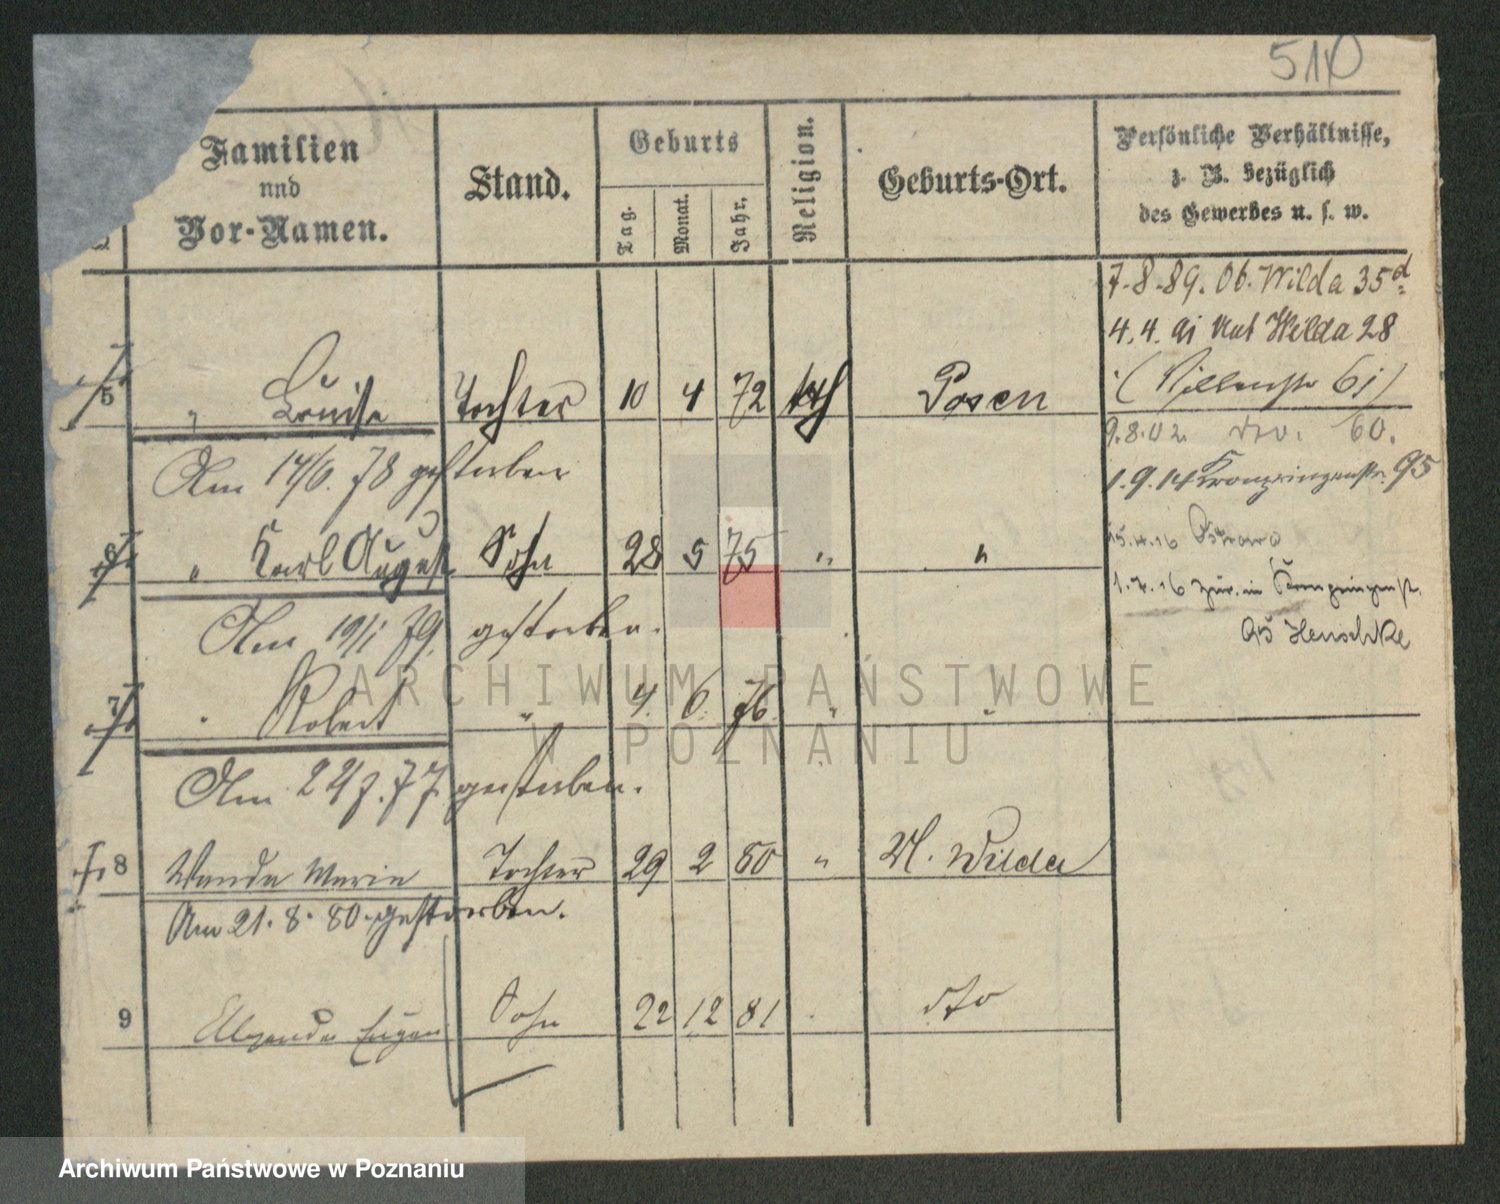 510
Familien
und
Vor-Namen.
Stand.
Geburts
Tag.
Monat.
Jahr.
Religion.
Geburts-Ort.
Persönliche Verhältnisse,
z. B. bezüglich
des Gewerbes u. s. w.
7.8.89. Ob. Wilda 35d
4.4.91 Unt Wilda 28
5 " Louise Tochter 10 4 72 kth Posen
( 61)
9.8.02. 60.
Am 14/6. 78 gestorben
1.9.14 Kronprinzenstr. 95
6 " Karl August Sohn 28 5 75 " "
15.4.16 Ostrowo
1.7.16 zur. in Kronprinzenst.
95 Henschke
Am 19/1 79. gestorben.
7 " Robert " 4. 6. 76. " "
Am 22/7. 77 gestorben.
8 Wanda Marie Tochter 29 2 80 " U. Wilda
Am 21. 8. 80. gestorben.
9 Alexander Eugen Sohn 22 12 81 dto
ARCHIWUM PAŃSTWOWE
W POZNANIU
Archiwum Państwowe w Poznaniu